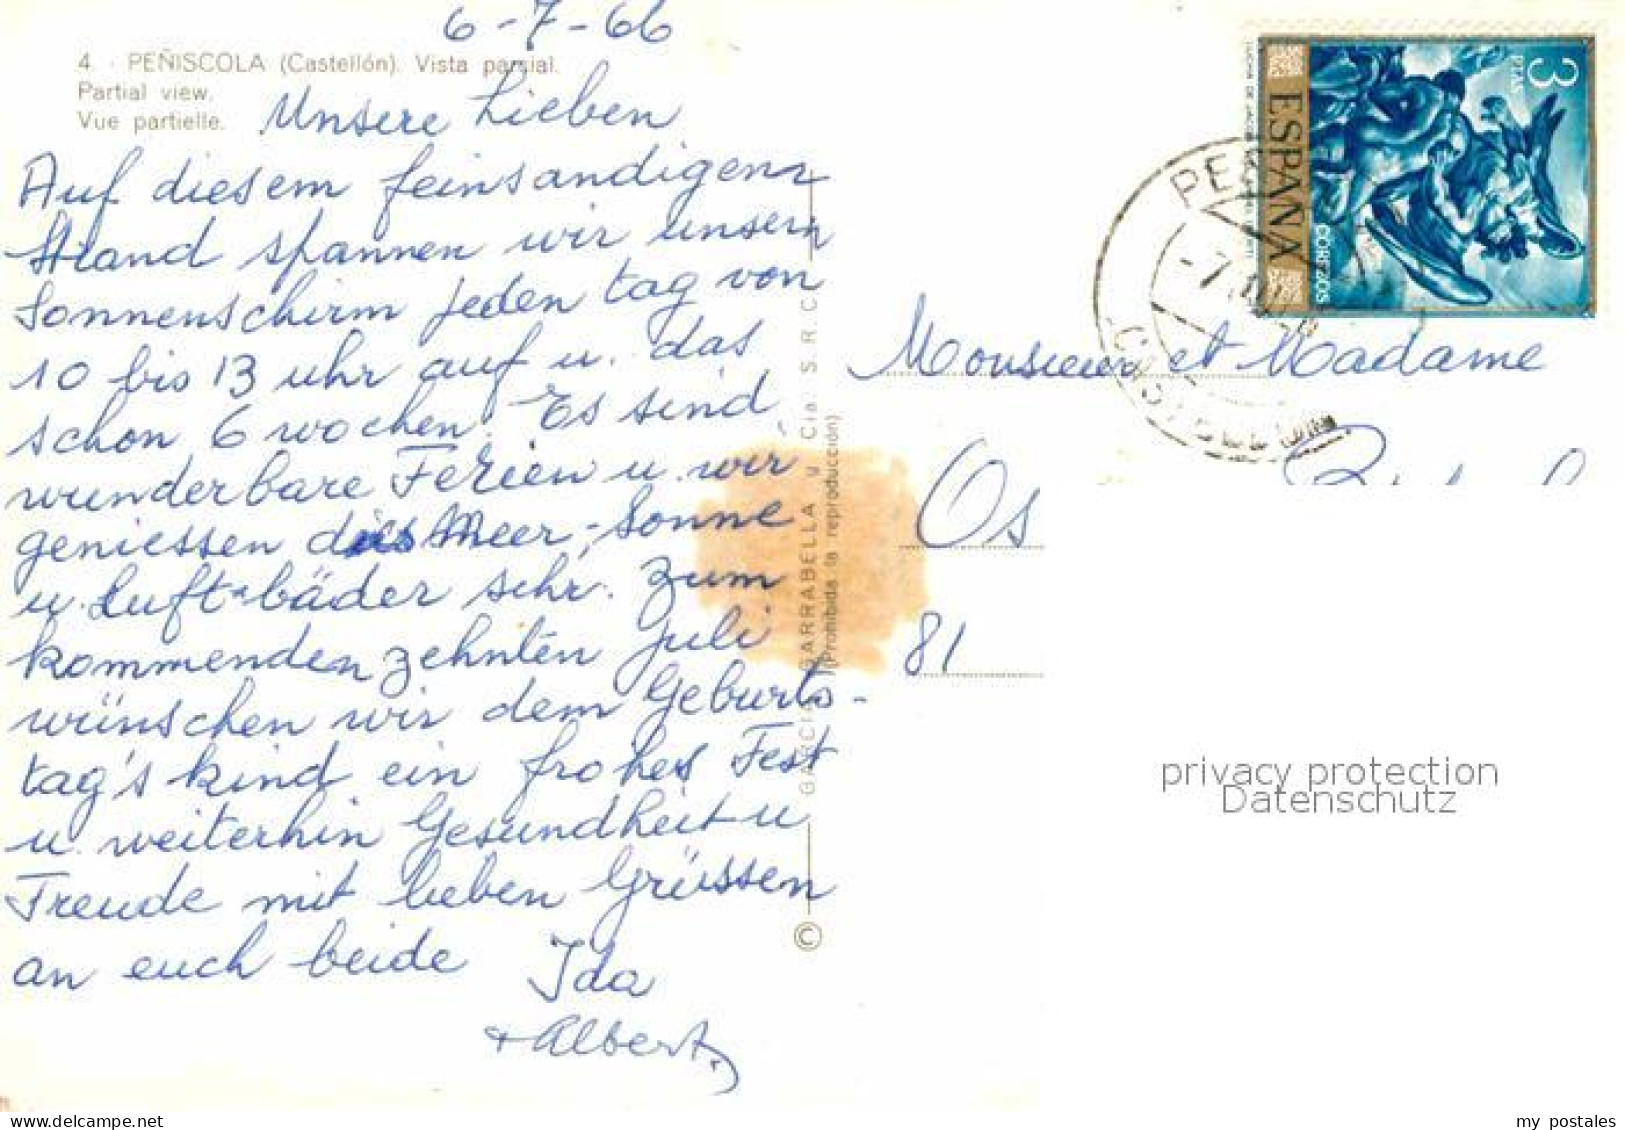 6-7-66
4 · PEÑISCOLA (Castellón). Vista parcial.
Partial view.
Vue partielle.
Unsere Lieben
Auf diesem feinsandigen
Strand spannen wir unsern
Sonnenschirm jeden tag von
10 bis 13 uhr auf u. das
schon 6 wochen. Es sind
wunderbare Ferien u. wir
geniessen das Meer-, Sonne
u. Luft-bäder sehr. Zum
kommenden zehnten Juli
wünschen wir dem Geburts-
tag's kind ein frohes Fest
u. weiterhin Gesundheit u
Freude mit lieben Grüssen
an euch beide Ida
+ Albert.
© GARCIA GARRABELLA y Cia. S. R. C.
(Prohibida la reproducción)
3 PTAS
ESPAÑA
CORREOS
CASTELLON
Monsieur et Madame
Os
81
privacy protection
Datenschutz
my postales